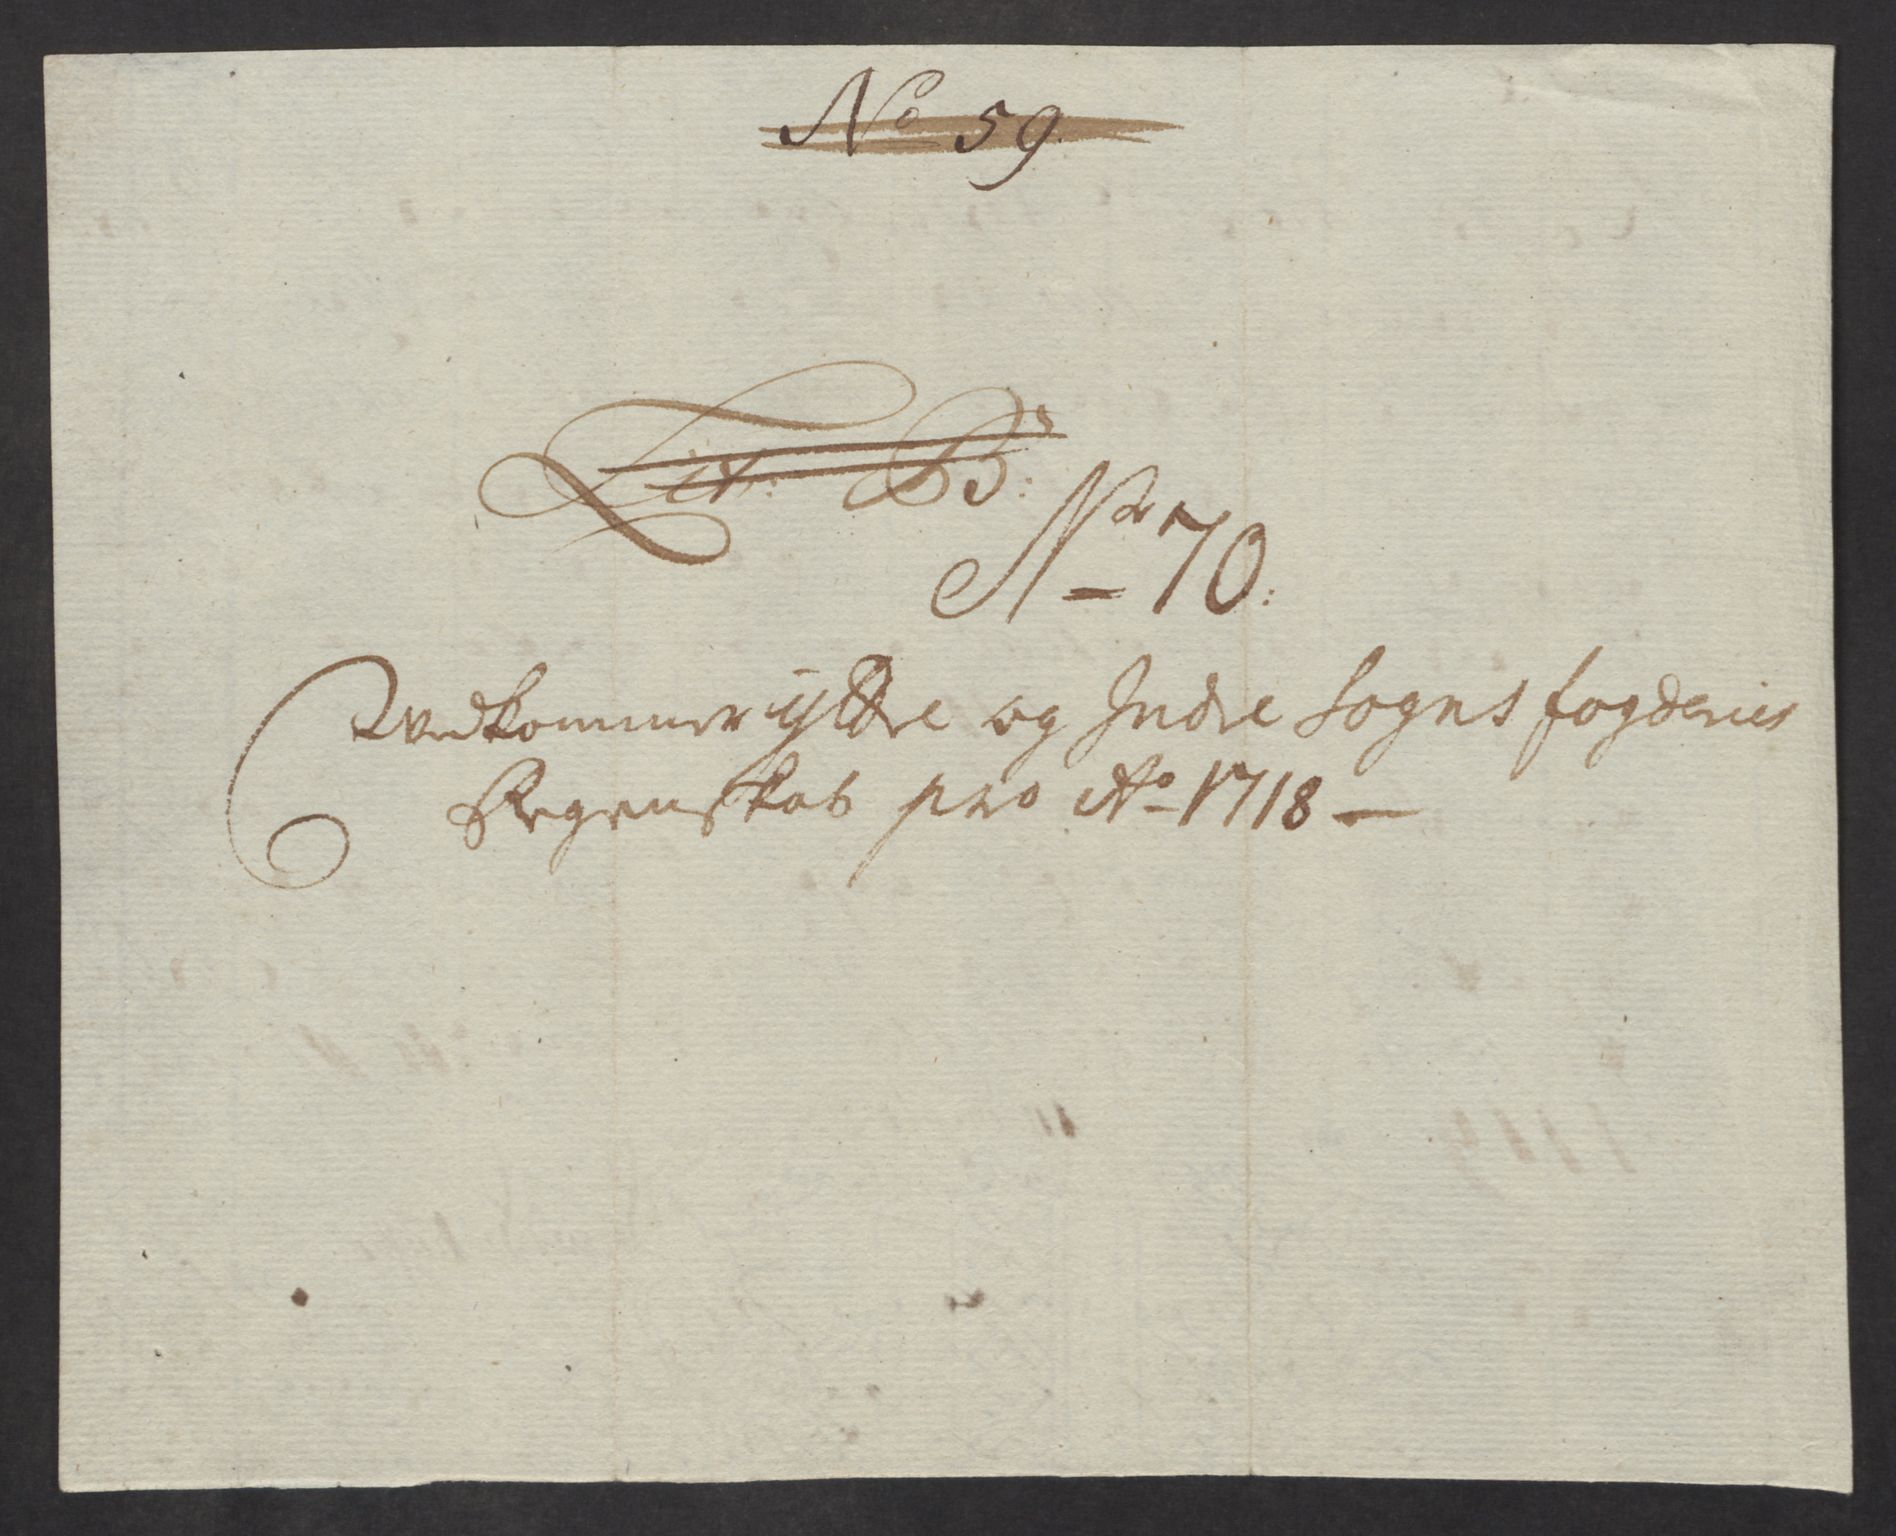 No 59.
Lit: B:
Nr 70:
Vedkommer ÿttre og Indre Sogns fogderies
Regenskab pro Ao 1718 —